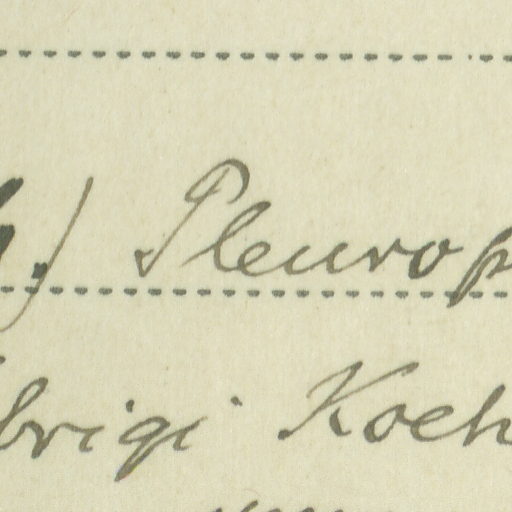 .) Pleurop
brigi Koeh